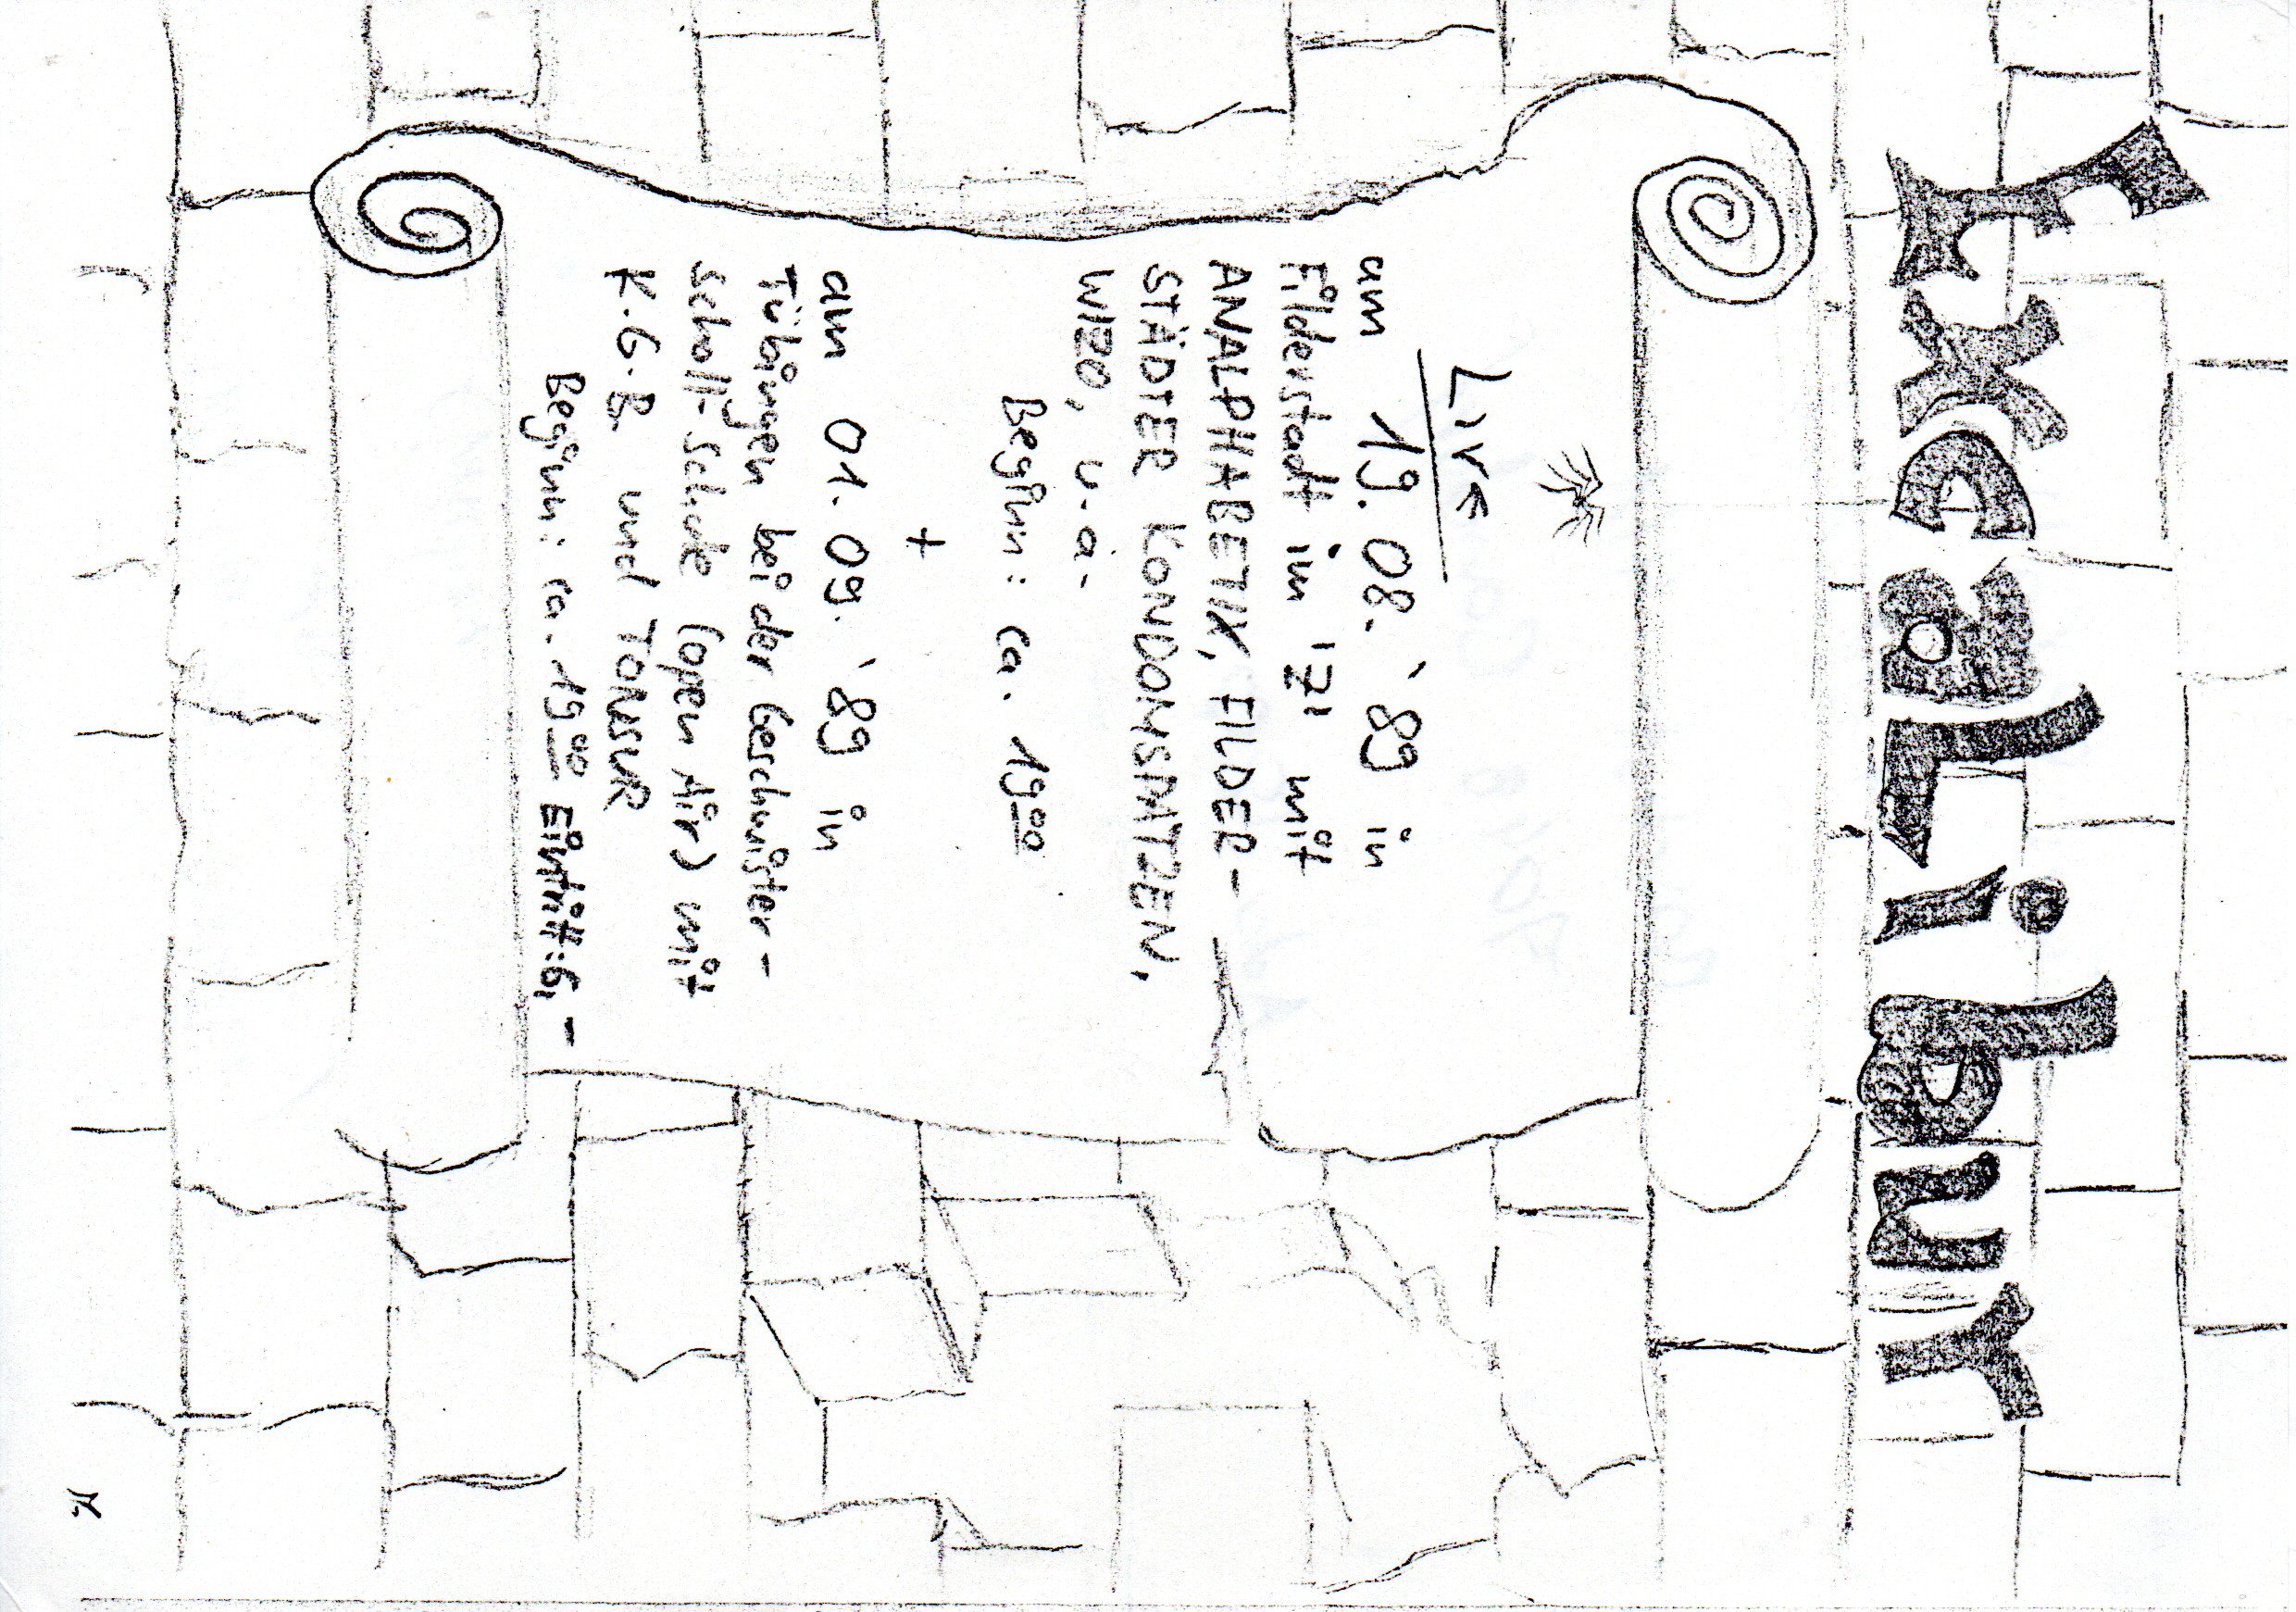 ExcaLibur
Live
am 19.08. '89 in
Filderstadt im 'Z' mit
ANALPHABETIX, FILDER-
STÄDTER KONDOMSPATZEN,
WIZO, u.a.
Beginn: ca. 19⁰⁰
+
am 01.09. '89 in
Tübingen bei der Geschwister-
scholl-Schule (open Air) mit
K.G.B. und TONSUR
Beginn: ca. 19⁰⁰ Eintritt: 6,-